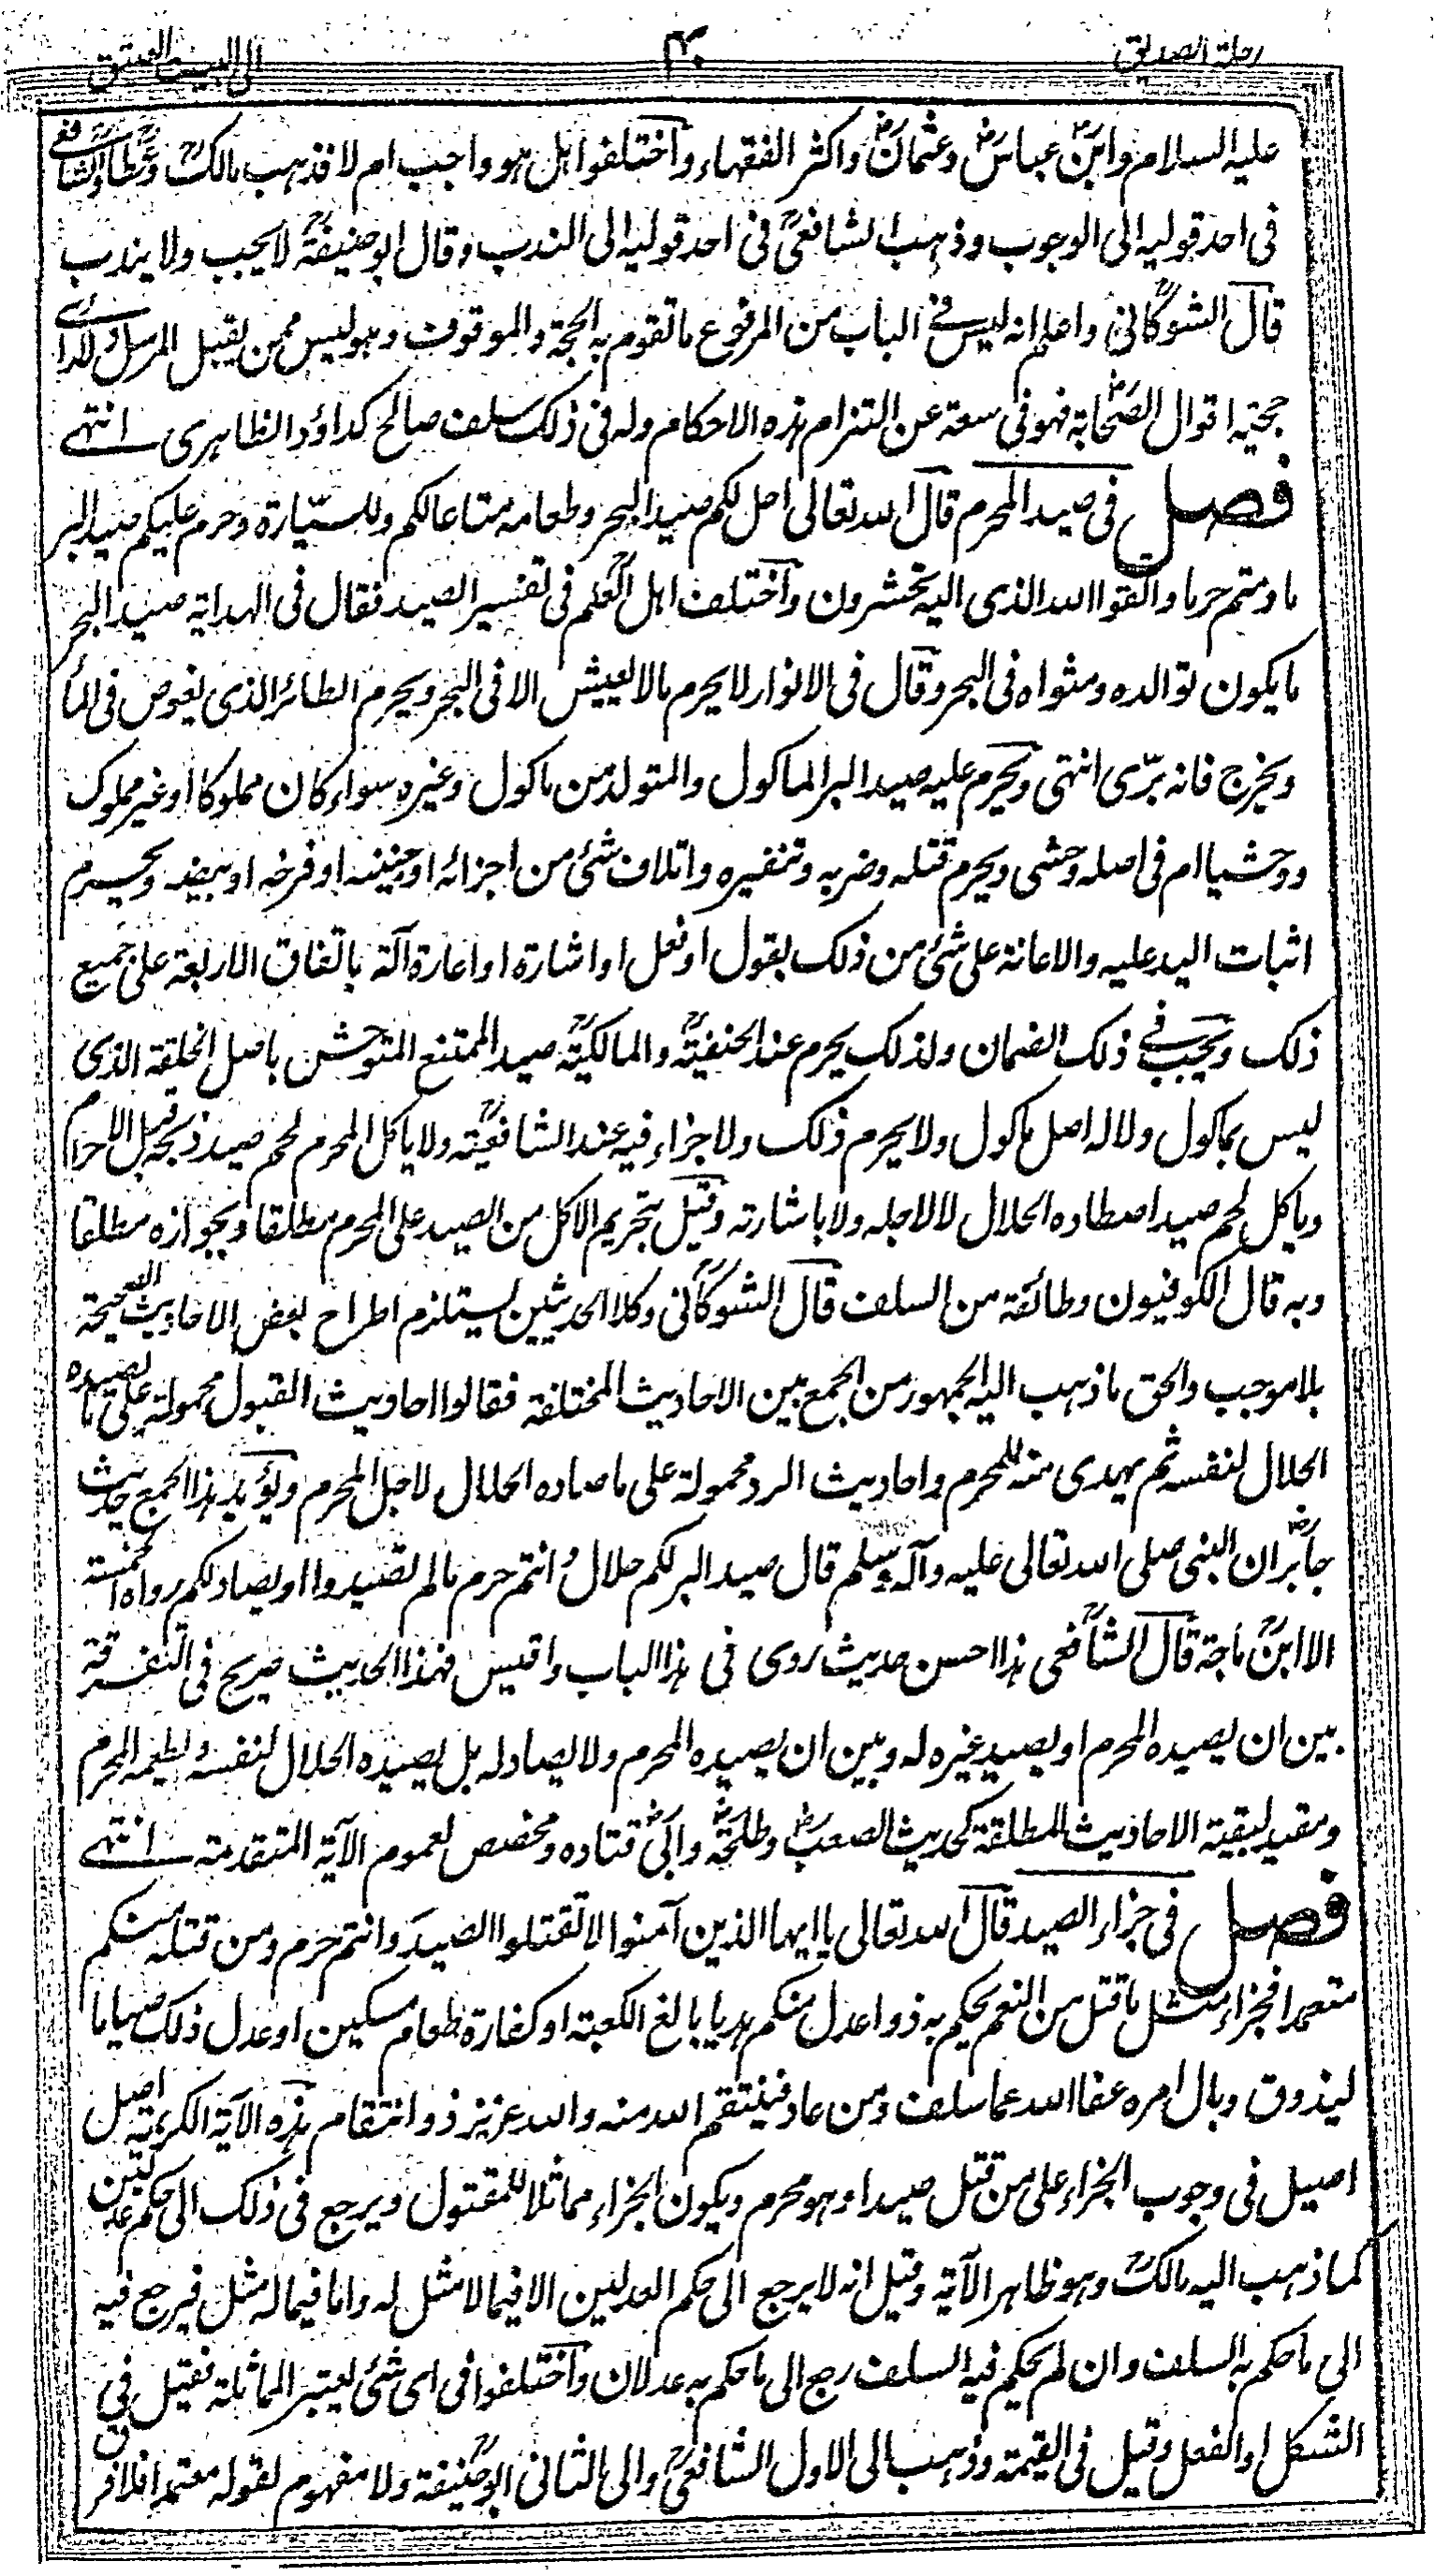 رحلة الصديق ٤٠ الى البيت العتيق
عليه السلام وابن عباس وعثمان واكثر الفقهاء واختلفوا هل هو واجب ام لا فذهب مالك وعطاء والشافعي
فى احد قوليه الى الوجوب وذهب الشافعى فى احد قوليه الى الندب وقال ابو حنيفة لا يجب ولا يندب
قال الشوكانى واعلم انه ليس فى الباب من المرفوع ما تقوم به الحجة والموقوف وهو ليس ممن يقبل المرسل ولا رأى
حجية اقوال الصحابة فهو فى سعة عن التزام هذه الاحكام وله فى ذلك سلف صالح كداؤد الظاهرى انتهى
فصل فى صيد المحرم قال الله تعالى احل لكم صيد البحر وطعامه متاعا لكم وللسيّارة وحرم عليكم صيد البر
ما دمتم حرما واتقوا الله الذى اليه تحشرون واختلف اهل العلم فى تفسير الصيد فقال فى الهداية صيد البحر
ما يكون توالده ومثواه فى البحر وقال فى الانوار لا يحرم ما لا يعيش الا فى البحر ويحرم الطائر الذى يغوص فى الماء
ويخرج فانه برّى انتهى ويحرم عليه صيد البر الماكول والمتولد من ماكول وغيره سواء كان مملوكا او غير مملوك
ووحشيا ام فى اصله وحشى ويحرم قتله وضربه وتنفيره واتلاف شئ من اجزائه او جنينه او فرخه او بيضه ويحرم
اثبات اليد عليه والاعانة على شئ من ذلك بقول او فعل او اشارة او اعارة آلة باتفاق الاربعة على جميع
ذلك ويجب فى ذلك الضمان ولذلك يحرم عند الحنفية والمالكية صيد الممتنع المتوحش باصل الخلقة الذى
ليس بماكول ولا له اصل ماكول ولا يحرم ذلك ولا جزاء فيه عند الشافعية ولا ياكل المحرم لحم صيد ذبحه قبل الاحرام
وياكل لحم صيد اصطاده الحلال لا لاجله ولا باشارته وقيل بتحريم الاكل من الصيد على المحرم مطلقا وبجوازه مطلقا
وبه قال الكوفيون وطائفة من السلف قال الشوكانى وكلا الحديثين يستلزم اطراح بعض الاحاديث الصحيحة
بلا موجب والحق ما ذهب اليه الجمهور من الجمع بين الاحاديث المختلفة فقالوا احاديث القبول محمولة على ما يصيده
الحلال لنفسه ثم يهدى منه للمحرم واحاديث الرد محمولة على ما صاده الحلال لاجل المحرم ويؤيد هذا الجمع حديث
جابر ان النبى صلى الله تعالى عليه وآله وسلم قال صيد البر لكم حلال وانتم حرم ما لم تصيدوا او يصاد لكم رواه الخمسة
الا ابن ماجة قال الشافعى هذا احسن حديث روى فى هذا الباب واقيس فهذا الحديث صريح فى التفرقة
بين ان يصيده المحرم او يصيد غيره له وبين ان يصيده المحرم ولا يصاد له بل يصيده الحلال لنفسه ويطعمه المحرم
ومقيد لبقية الاحاديث المطلقة كحديث الصعب وطلحة وابى قتاده ومخصص لعموم الآية المتقدمة انتهى
فصل فى جزاء الصيد قال الله تعالى يا ايها الذين آمنوا لا تقتلوا الصيد وانتم حرم ومن قتله منكم
متعمدا فجزاء مثل ما قتل من النعم يحكم به ذوا عدل منكم هديا بالغ الكعبة او كفارة طعام مسكين او عدل ذلك صياما
ليذوق وبال امره عفا الله عما سلف ومن عاد فينتقم الله منه والله عزيز ذو انتقام هذه الآية الكريمة اصل
اصيل فى وجوب الجزاء على من قتل صيدا وهو محرم ويكون الجزاء مماثلا للمقتول ويرجع فى ذلك الى حكم عدلين
كما ذهب اليه مالك وهو ظاهر الآية وقيل انه لا يرجع الى حكم العدلين الا فيما لا مثل له واما فيما له مثل فيرجع فيه
الى ما حكم به السلف وان لم يحكم فيه السلف رجع الى ما حكم به عدلان واختلفوا فى اى شئ يعتبر المماثلة فقيل فى
الشكل او الفعل وقيل فى القيمة وذهب الى الاول الشافعى والى الثانى ابو حنيفة ولا مفهوم لقوله معتمدا فلا فرق